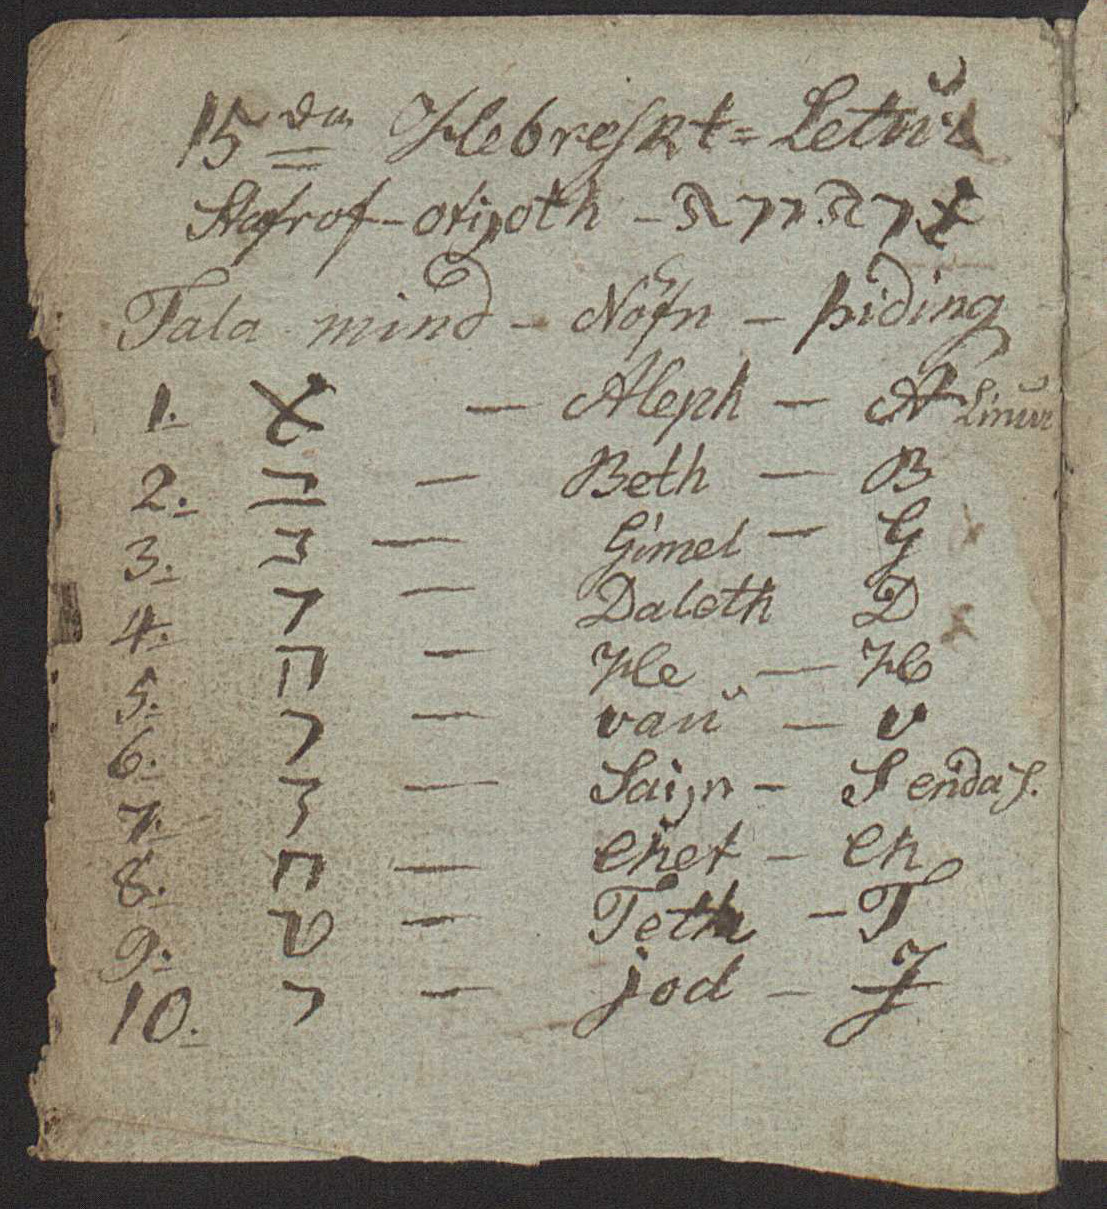 15da Hebreskt = Letur
Stafrof - otijoth -
Tala mind - Nöfn - þiding
1. א — Aleph — A Linur
2. ב — Beth — B
3. ג — Gimel — G
4. ד — Daleth D
5. ה — He — H
6. ו — vaŭ — v
7. ז — Saijn - S enda s.
8. ח — Chet - Ch
9. ט — Teth - T
10. י — jod - J